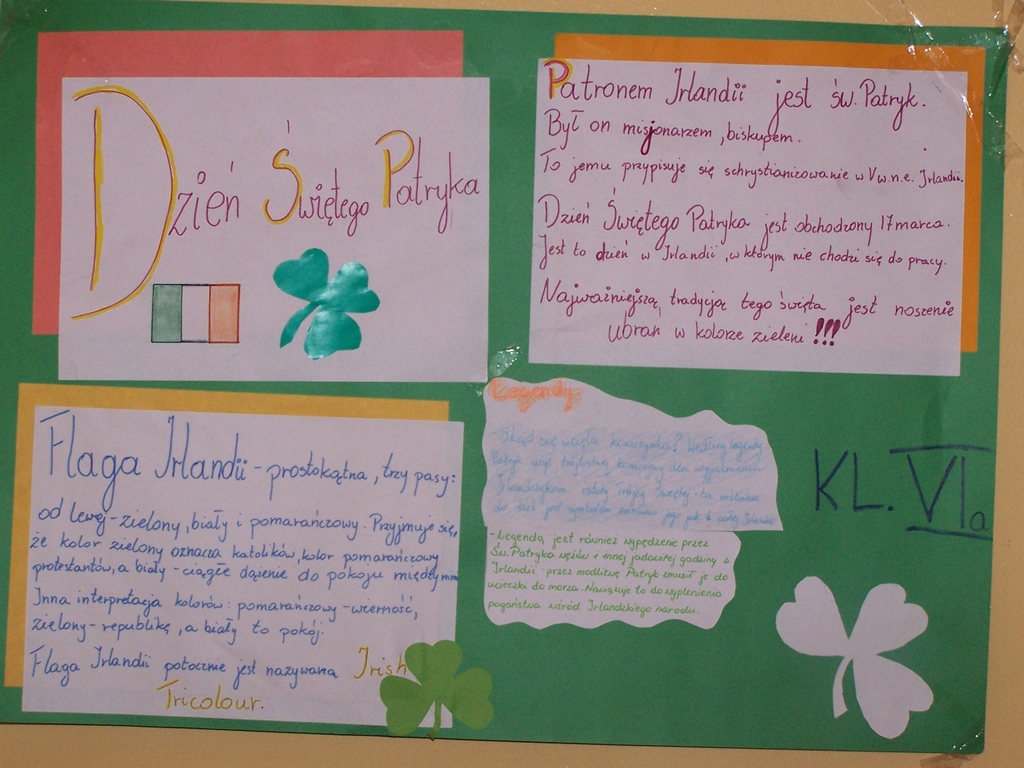 Dzień Świętego Patryka
Patronem Irlandii jest św. Patryk.
Był on misjonarzem, biskupem.
To jemu przypisuje się schrystianizowanie w V w.n.e. Irlandii.
Dzień Świętego Patryka jest obchodzony 17 marca.
Jest to dzień w Irlandii, w którym nie chodzi się do pracy.
Najważniejszą tradycją tego święta jest noszenie
ubrań w kolorze zieleni!!!
Flaga Irlandii - prostokątna, trzy pasy:
od lewej - zielony, biały i pomarańczowy. Przyjmuje się,
że kolor zielony oznacza katolików, kolor pomarańczowy
protestantów, a biały - ciągłe dążenie do pokoju między nimi
Inna interpretacja kolorów: pomarańczowy - wierność,
zielony - republikę, a biały to pokój.
Flaga Irlandii potocznie jest nazywana Irish
Tricolour.
Legendy
- Skąd się wzięła koniczynka? Według legendy
Patryk wziął trójlistną koniczynę dla wyjaśnienia
Irlandczykom istoty Trójcy Świętej - ta roślinka
do dziś jest symbolem zarówno jego jak i całej Irlandii
- Legendą jest również wypędzenie przez
Św. Patryka węzów i innej jadowitej gadziny z
Irlandii - przez modlitwę Patryk zmusił je do
ucieczki do morza. Nawiązuje to do wyplenienia
pogaństwa wśród Irlandzkiego narodu.
KL. VIa